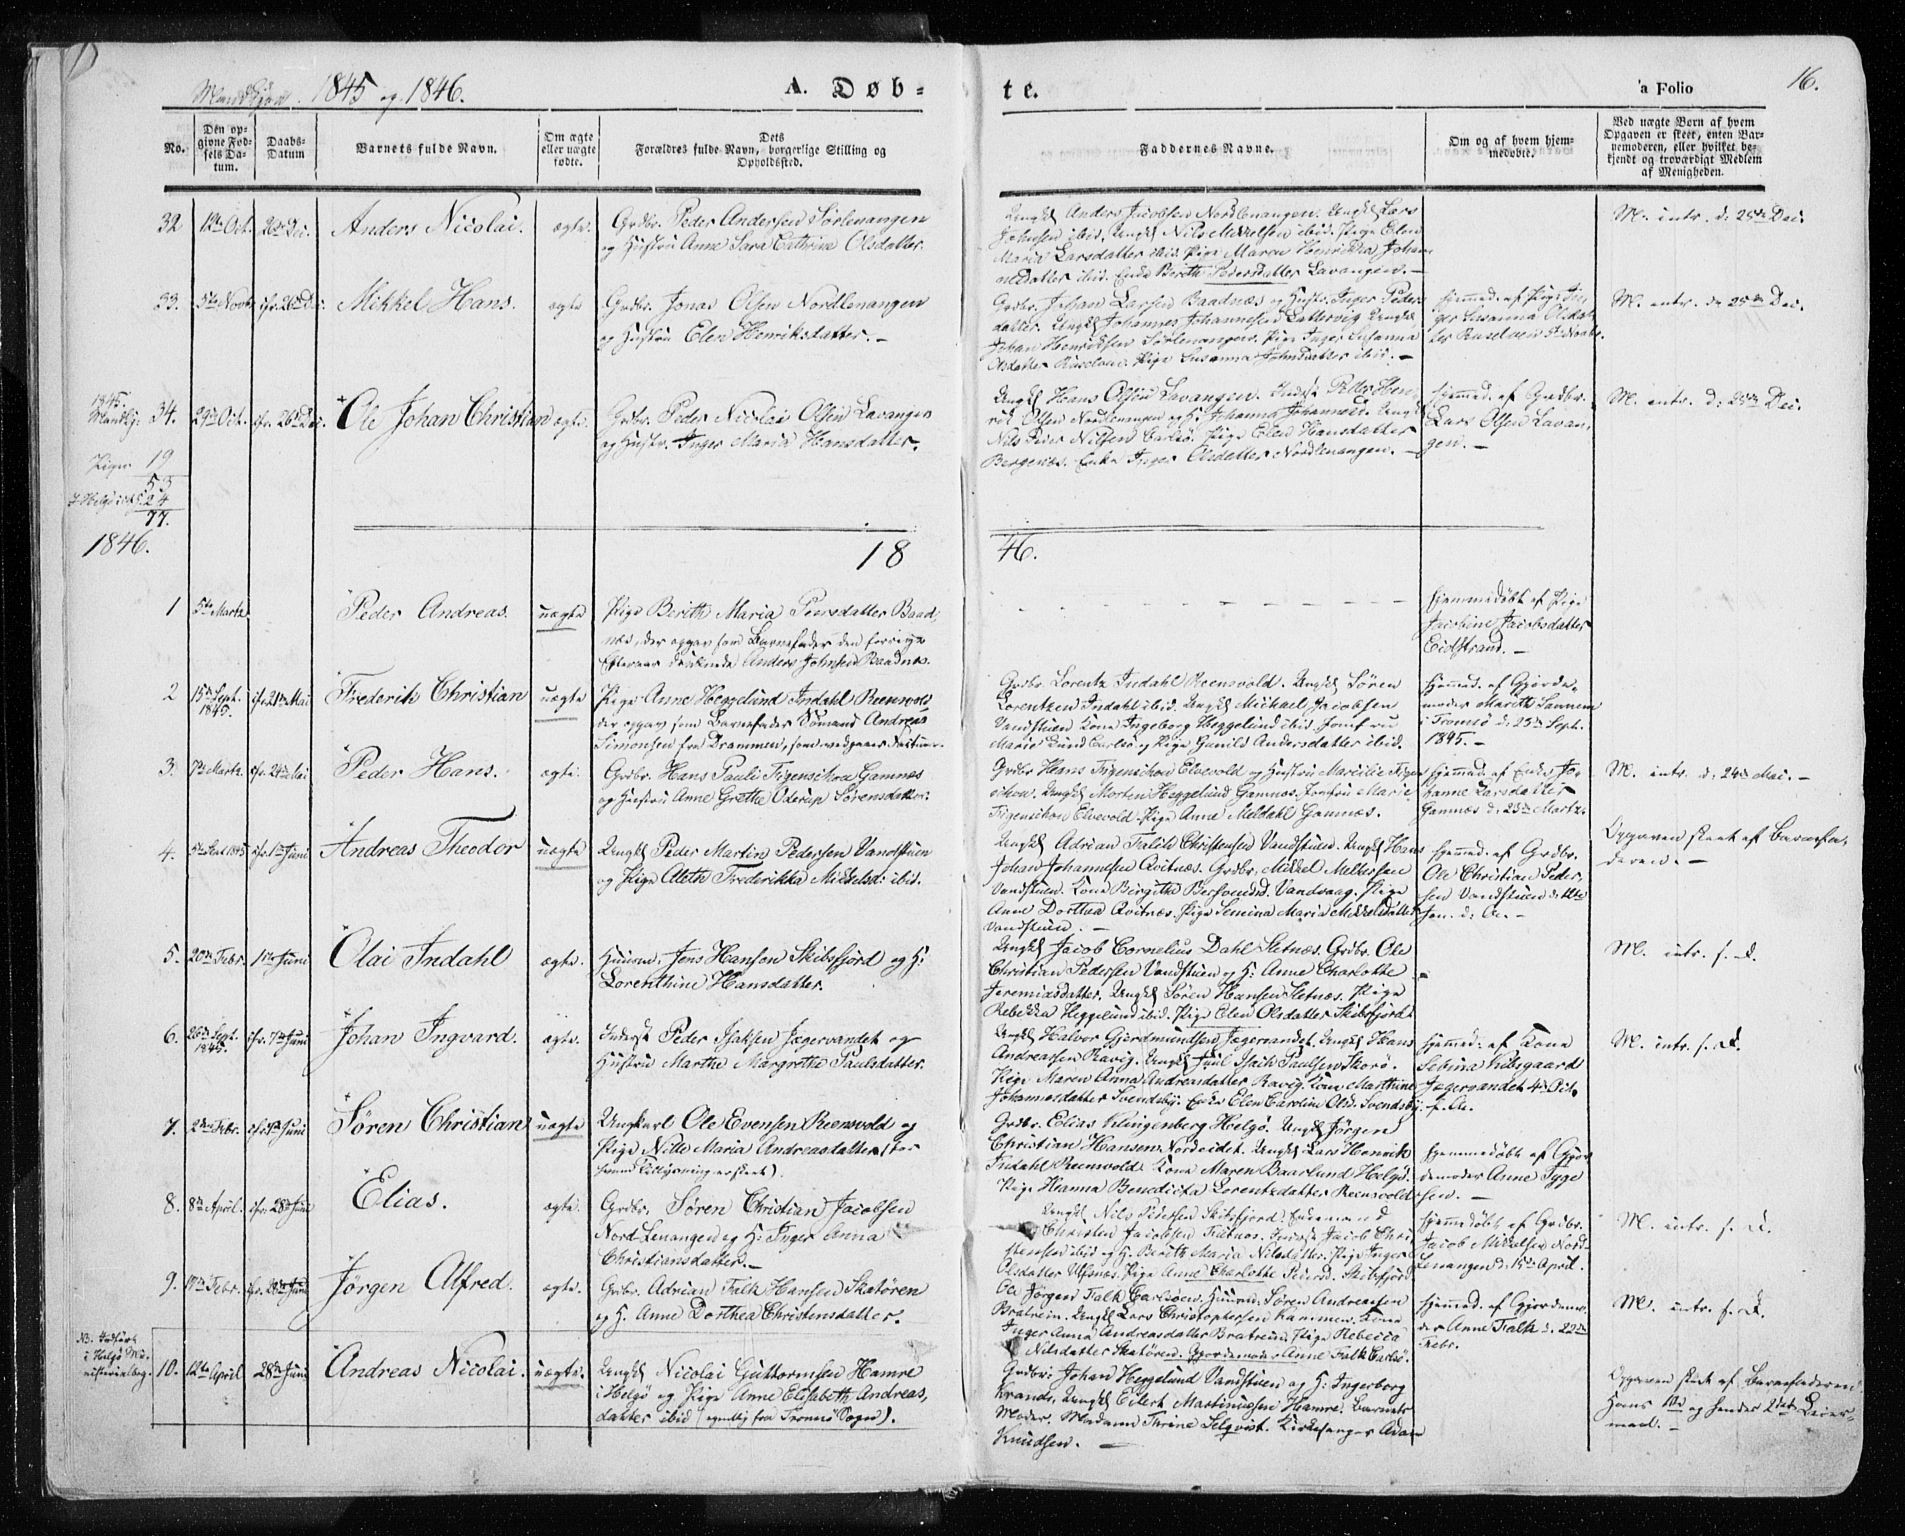 Mandkjøn. 1845 og 1846.
A. Døb-
te.
'a Folio
16.
No.
Den op-
givne Fød-
sels Da-
tum.
Daabs-
Datum
Barnets fulde Navn.
Om ægte
eller uægte
fødte.
Dets
Forældres fulde Navn, borgerlige Stilling og
Opholdssted.
Faddernes Navne.
Om og af hvem hjem-
medøbte.
Ved uægte Børn af hvem
Opgaven er skeet, enten Bar-
nemoderen, eller hvilket be-
kjendt og troværdigt Medlem
af Menigheden.
32
12te Oct.
26de Dec.
Anders Nicolai.
ægte.
Grdbr. Peder Andersen Sørlenangen
og Hustru Anne Sara Cathrina Olsdatter.
Ungkl Anders Jacobsen Nordlenangen. Ungkl Lars
Johnsen ibid. Ungkl Nils Mikkelsen ibid. Pige Elen
Maria Larsdatter ibid. Pige Maren Henrikka Johan
nesdatter ibid. Enke Berith Pedersdatter Lavangen.
M. intr. d: 25de Dec.
33.
5te Novbr
cfr. 26de Dec.
Mikkel Hans.
ægte
Grdbr. Jonas Olsen Nordlenangen
og Hustru Elen Henriksdatter.
Grdbr. Johan Larsen Baadnæs og Hustr. Inger Peders
datter. Ungkl Johannes Johannesen Ungkl
Johan Henriksen Sørlenangen. Pige Inger Susanna
Olsdatter Pige Susanna Johnsdatter ibid.
Hjemmed. af Pige In-
ger Susanna Olsdat-
ter 5te Novbr.
M. intr. d: 25de Dec.
1845.
Mandkj.
34.
29de Oct.
cfr. 26de Dec.
Ole Johan Christian
ægte.
Grdbr. Peder Nicolai Olsen Lavangen
og Hustr. Inger Maria Hansdatter.
Ungkl Hans Olsen Lavangen. Inderst Peder Hen
rik Olsen Nordlenangen og H. Johanna Johannesd. Ungkl
Nils Peder Nilsen Carlsø. Pige Elen Hansdatter
Bergenæs. Enke Inger Olsdatter Nordlenangen.
Hjemmed. af Grdbr.
Lars Olsen Lavan-
gen.
M. intr. d: 25de Dec.
Piger 19
53
I Helgø 1845 24
77.
1846.
18
46.
1
5te Martz
Peder Andreas.
uægte
Pige Berith Maria Peersdatter Baad
næs, der opgav som Barnefader den forrige
Efteraar druknede Anders Johnsen Baadnæs.
Hjemmedøbt af Pige
Jacobine Jacobsdatter
Eidstrand.
2
15de Sept.
1845.
cfr. 21de Mai
Frederik Christian
uægte
Pige Anne Heggelund Indahl Reenvold
der opgav som Barnefader Sømand Andreas
Simonsen fra Drammen, som
Grdbr. Lorentz Indahl Reensvold. Ungkl Søren
Lorentzen Indahl ibid. Ungkl Michael Jacobsen
Vandstuen Kone Ingeborg Heggelund ibid. Jomfru
Marie Lund Carlsø og Pige Gunild Andersdatter ibid.
Hjemmed. af Gjorde-
moder Marith
i Tromsø d: 25de Sept.
1845.
3.
7de Martz.
cfr. 24de Mai
Peder Hans.
ægte.
Grdbr. Hans Pauli Figenschou Gamnæs
og Hustru Anne Grethe Oderup Sørensdatter.
Grdbr Hans Figenschou Elvevold og Hustru Marcilie Figen
schou. Ungkl Morten Heggelund Gamnæs. Jomfru Marie
Figenschou Elvevold. Pige Anne Meldahl Gamnæs.
Hjemmed. af Enke Jo-
hanne Larsdatter
Gamnæs d: 23de Martz.
M. intr. d: 24de Mai.
4.
1845
cfr. 1ste Juni
Andreas Theodor
uægte
Ungkl Peder Martin Pedersen Vandstuen
og Pige Aleth Frederikka Mickelsd: ibid.
Ungkl Adrian Falck Christensen Vandstuen. Ungkl Hans
Johan Johannesen Qvitnæs. Grdbr. Mikkel Meltersen
Vandstuen. Kone Birgithe Vandvaag. Pige
Anne Dorthea Qvitnæs. Pige Semina Maria Mikkelsdatter
Vandstuen.
Hjemmed. af Grdbr.
Ole Christian Peder-
sen Vandstuen d: 11te
Jan. d: A.
Opgaven skeet af Barnefa-
deren.
5.
20de Febr.
1ste Juni
Olai Indahl
ægte.
Huusm. Jens Hanson Skibsfjord og H:
Lorenthine Hansdatter.
Ungkl Jacob Cornelius Dahl Sletnæs. Grdbr. Ole
Christian Pedersen Vandstuen og H: Anne Charlotte
Jeremiasdatter. Ungkl Søren Hansen Sletnæs. Pige
Rebekka Heggelund ibid. Pige Elen Olsdatter Skibsfjord.
M. intr. s. D.
6.
26de Sept.
1845.
cfr. 7de Juni
Johan Ingvard.
ægte.
Inderst Peder Isaksen Jægervandet og
Hustru Marthe Margrethe Paulsdatter.
Ungkl Halvor Gjerdmundsen Jægervandet. Ungkl Hans
Andreassen Ravig. Ungkl Juul Isach Paulsen Skorø.
Pige Maren Anna Andreasdatter Ravig. Kone Marthine
Johannesdatter Svendsby. Enke Elen Caroline Olsd. Svendsby.
Hjemmed: af Kone
Sebina Kilsgaard
Jægervandet 4de Oct.
f. A.
M. intr. s. D.
7.
Febr.
cfr. Juni
Søren Christian
uægte
Ungkarl Ole Evensen Reensvold og
Pige Nille Maria Andreasdatter (Tro
lovede Tillysning er skeet).
Grdbr. Elias Klingenberg Helgø. Ungkl Jørgen
Christian Hansen Nordeidet. Ungkl Lars Henrik
Indahl Reensvold. Kone Maren Baarlund Helgø.
Pige Hanna Benedicta Lorentzdatter Reensvold.
Hjemmedøbt af Gjor
demoder Anne Tyge
sen.
8.
8de April.
cfr. 28de Juni
Elias.
ægte.
Grdbr. Søren Christian Jacobsen
Nord-Lenangen og H: Inger Anna
Christiansdatter.
Ungkl Nils Pedersen Skibsfjord. Enkemand
Christen Jacobsen Inderst Jacob Chri
stensen ibid og H. Berith Maria Nilsdatter. Pige Inger
Olsdatter Ulfsnæs. Pige Anne Charlotte Pedersd. Skibsfjord
Hjemmedøbt af Grdbr.
Jacob Mikkelsen Nord-
Lenangen d: 15de April.
M. intr. s. D.
9.
19de Febr.
cfr. 28de Juni
Jørgen Alfred.
ægte.
Grdbr. Adrian Falk Hansen Skatøren
og H. Anne Dorthea Christensdatter.
Jørgen Falk Carlsøen. Huusm. Søren Andreassen
Bratrein. Ungkl Lars Christophersen Hammen. Kone
Inger Anna Andreasdatter Bratrein. Pige Rebecca
Nilsdatter Skatøren. Gjordemoder Anne Falk Carlsø.
Hjemmed. af Gjordemo-
der Anne Falk d: 22de
Febr.
M. intr. s. D.
NB. Indført
i Helgø Mi-
nisterialbog.
10.
12te April
28de Juni
Andreas Nicolai.
uægte.
Ungkl Nicolai Guttormsen Hamre
i Helgø og Pige Anne Elisabeth Andreas-
datter ibid (egentlig fra Tromsø Sogn).
Grdbr: Johan Heggelund Vandstuen og H: Ingeborg
Krande, Ungkl Eilert Martinussen Hamre. Barnets
Moder. Madame Thrine Selqvist. Kirkesanger Adam
Knudsen.
Opgaven skeet af Barnefaderen
Hans 1ste og hendes 2det Leier-
maal.